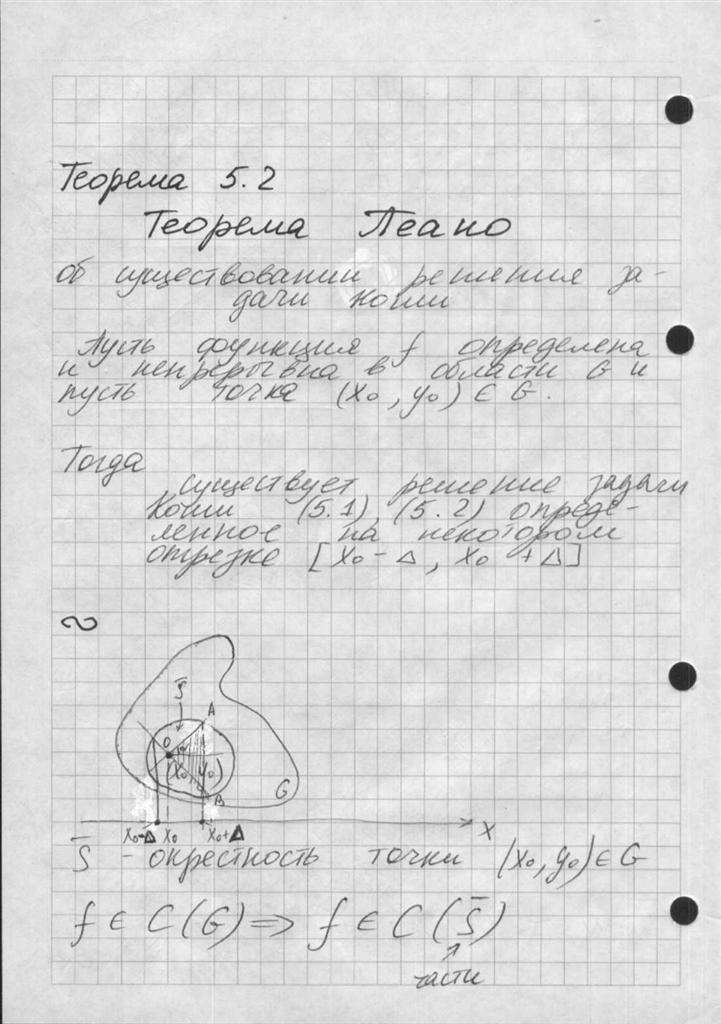 Теорема 5.2
Теорема Пеано
об существовании решения за-
дачи Коши
Пусть функция f определена
и непрерывна в области G и
пусть точка (x₀, y₀) ∈ G.
Тогда
существует решение задачи
Коши (5.1), (5.2) опреде-
ленное на некотором
отрезке [x₀ - Δ, x₀ + Δ]
S̄
A
O
(x₀, y₀)
B
G
x₀-Δ x₀ x₀+Δ
x
S̄ - окрестность точки (x₀, y₀) ∈ G
f ∈ C(G) => f ∈ C(S̄)
части